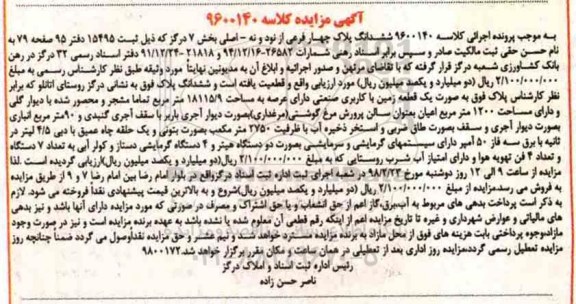 آگهی مزایده کلاسه ۹۶۰۰۱۴۰
به موجب پرونده اجرائی کلاسه ۹۶۰۰۱۴۰ ششدانگ پلاک چهار فرعی از نود و نه - اصلی بخش ۷ درگز که ذیل ثبت ۱۵۴۹۵ دفتر ۹۵ صفحه ۷۹ به
نام حسن حقی ثبت مالکیت صادر و سپس برابر اسناد رهنی شمارات ۲۶۵۸۲-۹۴/۱۲/۱۶ و ۲۱۸۱۸ - ۹۱/۱۲/۲۴ دفتر اسناد رسمی ۳۲ درگز در رهن
بانک کشاورزی شعبه درگز قرار گرفته که با تقاضای مرتهن و صدور اجرائیه و ابلاغ آن به مدیونین نهایتاً مورد وثیقه طبق نظر کارشناس رسمی به مبلغ
۲/۱۰۰/۰۰۰/۰۰۰ ریال (دو میلیارد و یکصد میلیون ریال) مورد ارزیابی واقع و قطعیت یافته است و ششدانگ پلاک فوق به نشانی درگز روستای اتانلو که برابر
نظر کارشناس پلاک فوق به صورت یک قطعه زمین با کاربری صنعتی دارای عرصه به مساحت ۱۸۱۱۵/۹ متر مربع تماما مشجر و محصور شده با دیوار گلی
و دارای مساحت ۱۲۰۰ متر مربع اعیان بعنوان سالن پرورش مرغ گوشتی(مرغداری)بصورت دیوار آجری باربر با سقف آجری گنبدی و ۹۰متر مربع انباری
بصورت دیوار آجری و سقف بصورت طاق ضربی و استخر ذخیره آب با ظرفیت ۲۷۵۰ متر مکعب بصورت بتونی و یک حلقه چاه عمیق با دبی ۴/۵ لیتر در
ثانیه با برق سه فاز ۵۰ آمپر دارای سیستمهای گرمایشی و سرمایشی بصورت دو دستگاه هیتر و ۴ دستگاه گرمایشی دستاز و کولر آبی به تعداد ۷ دستگاه
و تعداد ۴ فن تهویه هوا و دارای امتیاز آب شرب روستایی که به مبلغ ۲/۱۰۰/۰۰۰/۰۰۰ ریال(دو میلیارد و یکصد میلیون ریال)ارزیابی گردیده است .لذا
مزایده از ساعت ۹ الی ۱۲ روز دوشنبه مورخ ۹۸/۲/۲۳ در شعبه اجرای ثبت اداره ثبت اسناد درگزواقع در بلوار امام رضا بین امام رضا ۷ و ۹ از طریق مزایده
به فروش می رسد.مزایده از مبلغ ۲/۱۰۰/۰۰۰/۰۰۰ ریال (دو میلیارد و یکصد میلیون ریال)شروع و به بالاترین قیمت پیشنهادی نقداً فروخته می شود. لازم
به ذکر است پرداخت بدهی های مربوط به آب،برق،گاز اعم از حق انشعاب و یا حق اشتراک و مصرف در صورتی که مورد مزایده دارای آنها باشد و نیز بدهی
های مالیاتی و عوارض شهرداری و غیره تا تاریخ مزایده اعم از اینکه رقم قطعی آن معلوم شده یا نشده باشد به عهده برنده مزایده است و نیز در صورت وجود
مازاد،وجوه پرداختی بابت هزینه های فوق از محل مازاد به برنده مزایده مسترد خواهد شد.و نیم عشر و حق مزایده نقداًوصول می گردد ضمناً چنانچه روز
مزایده تعطیل رسمی گردد،مزایده روز اداری بعد از تعطیلی در همان ساعت و مکان مقرر برگزار خواهد شد.۹۸۰۰۱۷۲
رئیس اداره ثبت اسناد و املاک درگز
ناصر حسن زاده